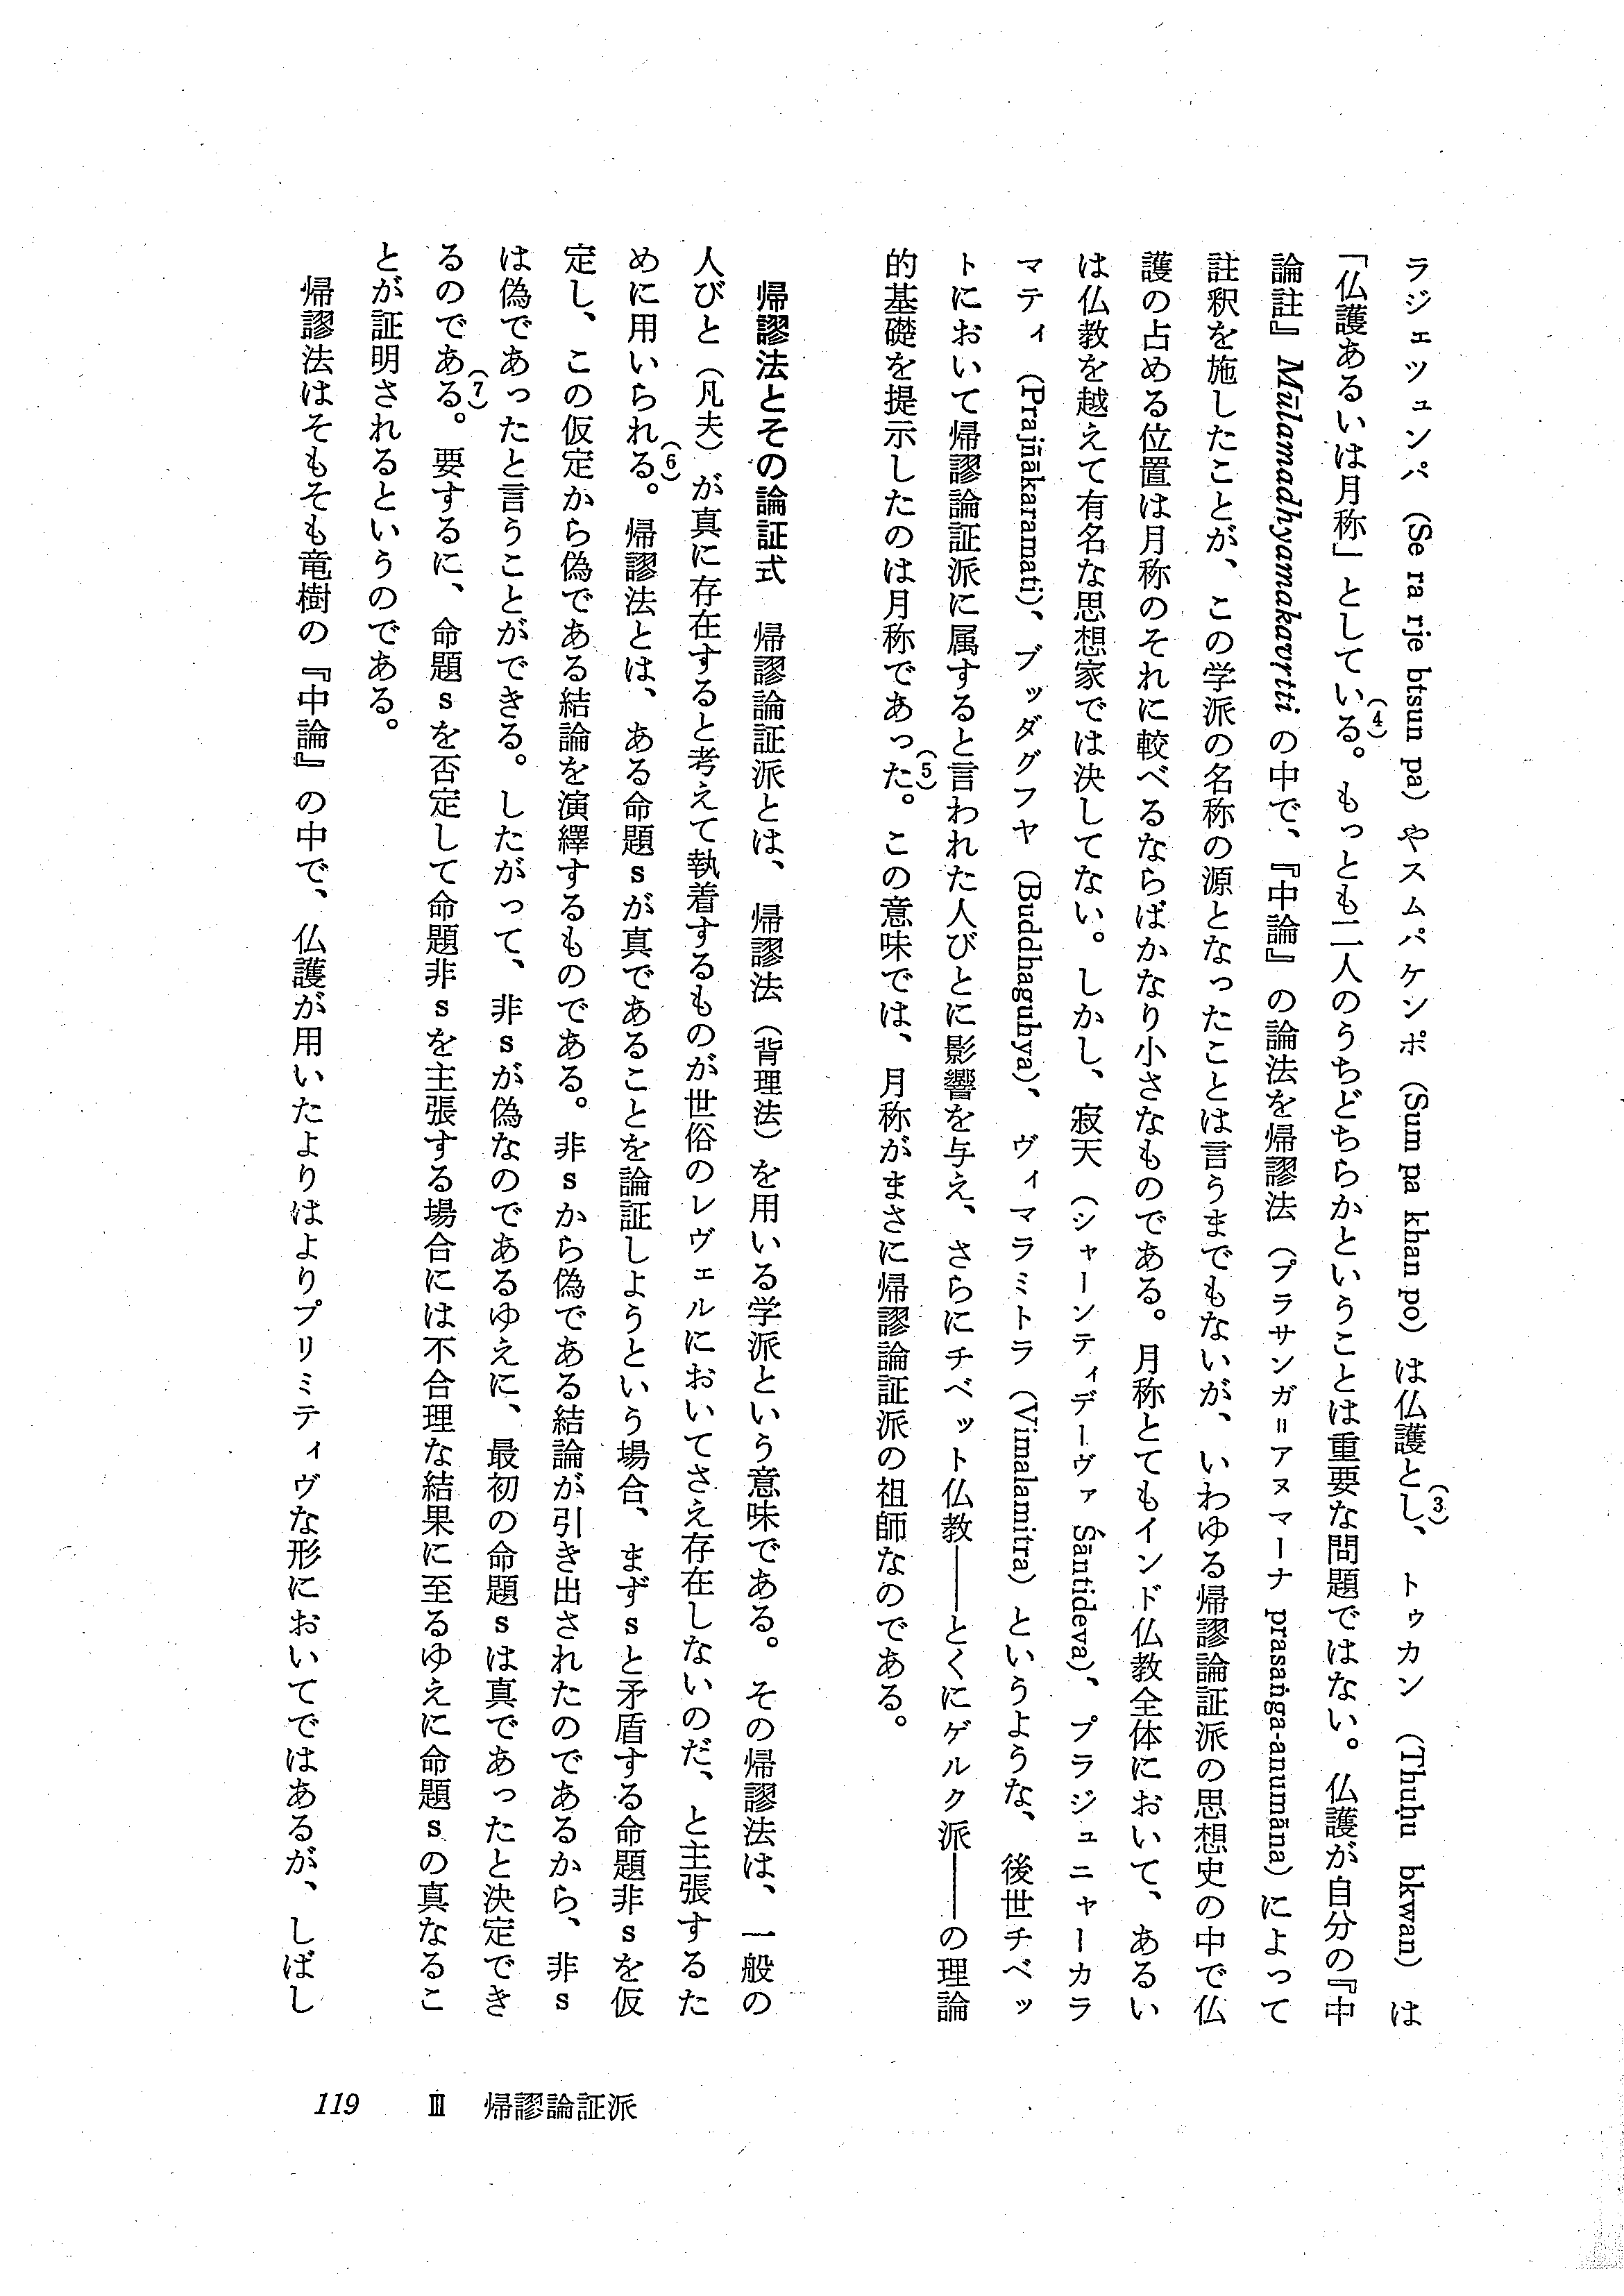 ラジェツュンパ（Se ra rje btsun pa）やスムパケンポ（Sum pa khan po）は仏護とし(3)、トゥカン（Thuḥu bkwan）は
「仏護あるいは月称」としている(4)。もっとも二人のうちどちらかということは重要な問題ではない。仏護が自分の『中
論註』Mūlamadhyamakavṛtti の中で、『中論』の論法を帰謬法（プラサンガ＝アヌマーナ prasaṅga-anumāna）によって
註釈を施したことが、この学派の名称の源となったことは言うまでもないが、いわゆる帰謬論証派の思想史の中で仏
護の占める位置は月称のそれに較べるならばかなり小さなものである。月称とてもインド仏教全体において、あるい
は仏教を越えて有名な思想家では決してない。しかし、寂天（シャーンティデーヴァ Śāntideva）、プラジュニャーカラ
マティ（Prajñākaramati）、ブッダグフヤ（Buddhaguhya）、ヴィマラミトラ（Vimalamitra）というような、後世チベッ
トにおいて帰謬論証派に属すると言われた人びとに影響を与え、さらにチベット仏教――とくにゲルク派――の理論
的基礎を提示したのは月称であった(5)。この意味では、月称がまさに帰謬論証派の祖師なのである。
帰謬法とその論証式　帰謬論証派とは、帰謬法（背理法）を用いる学派という意味である。その帰謬法は、一般の
人びと（凡夫）が真に存在すると考えて執着するものが世俗のレヴェルにおいてさえ存在しないのだ、と主張するた
めに用いられる(6)。帰謬法とは、ある命題sが真であることを論証しようという場合、まずsと矛盾する命題非sを仮
定し、この仮定から偽である結論を演繹するものである。非sから偽である結論が引き出されたのであるから、非s
は偽であったと言うことができる。したがって、非sが偽なのであるゆえに、最初の命題sは真であったと決定でき
るのである(7)。要するに、命題sを否定して命題非sを主張する場合には不合理な結果に至るゆえに命題sの真なるこ
とが証明されるというのである。
帰謬法はそもそも竜樹の『中論』の中で、仏護が用いたよりはよりプリミティヴな形においてではあるが、しばし
119　Ⅲ　帰謬論証派